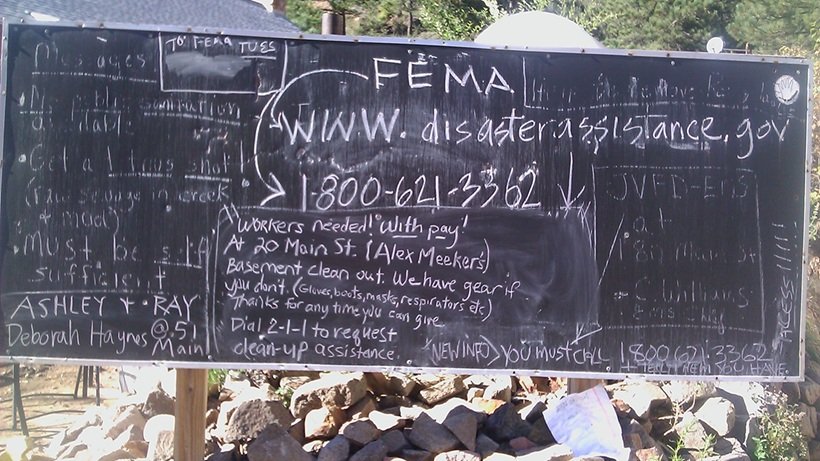 Messages
TO FEMA TUES
FEMA
No public sanitation
available
WWW.disasterassistance.gov
Get a tetanus shot!
(raw sewage in creek
& mud)
1-800-621-3362
JVFD-EMS
at
Main St
Must be self
sufficient
Workers needed! With pay!
At 20 Main St. (Alex Meeker's)
Basement clean out. We have gear if
you don't. (Gloves, boots, masks, respirators etc)
Thanks for any time you can give
Dial 2-1-1 to request
clean-up assistance.
ASHLEY + RAY
Deborah Haynes @ 51
Main
NEW INFO > YOU MUST CALL 1 800 621 3362
+ TELL THEM YOU HAVE
ACCESS !!!!!